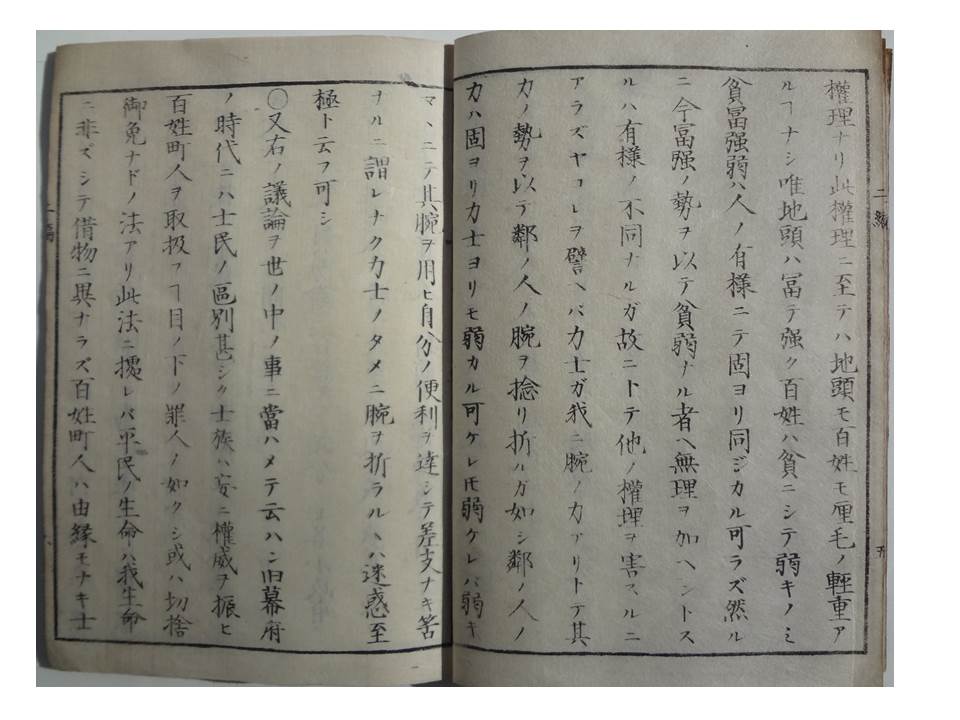 二編
五
權理ナリ此權理ニ至テハ地頭モ百姓モ厘毛ノ輕重ア
ルヿナシ唯地頭ハ冨テ强ク百姓ハ貧ニシテ弱キノミ
貧冨强弱ハ人ノ有樣ニテ固ヨリ同ジカル可ラズ然ル
ニ今富强ノ勢ヲ以テ貧弱ナル者ヘ無理ヲ加ヘントス
ルハ有様ノ不同ナルガ故ニトテ他ノ權理ヲ害スルニ
アラズヤコレヲ譬ヘバ力士ガ我ニ腕ノ力アリトテ其
力ノ勢ヲ以テ鄰ノ人ノ腕ヲ捻リ折ルガ如シ鄰ノ人ノ
力ハ固ヨリ力士ヨリモ弱カル可ケレ𪜈弱ケレバ弱キ
マヽニテ其腕ヲ用ヒ自分ノ便利ヲ達シテ差支ナキ筈
ナルニ謂レナク力士ノタメニ腕ヲ折ラルヽハ迷惑至
極ト云フ可シ
○又右ノ議論ヲ世ノ中ノ事ニ當ハメテ云ハン旧幕府
ノ時代ニハ士民ノ區別甚シク士族ハ妄ニ權威ヲ振ヒ
百姓町人ヲ取扱フヿ目ノ下ノ罪人ノ如クシ或ハ切捨
御免ナドノ法アリ此法ニ據レバ平民ノ生命ハ我生命
ニ非ズシテ借物ニ異ナラズ百姓町人ハ由縁モナキ士